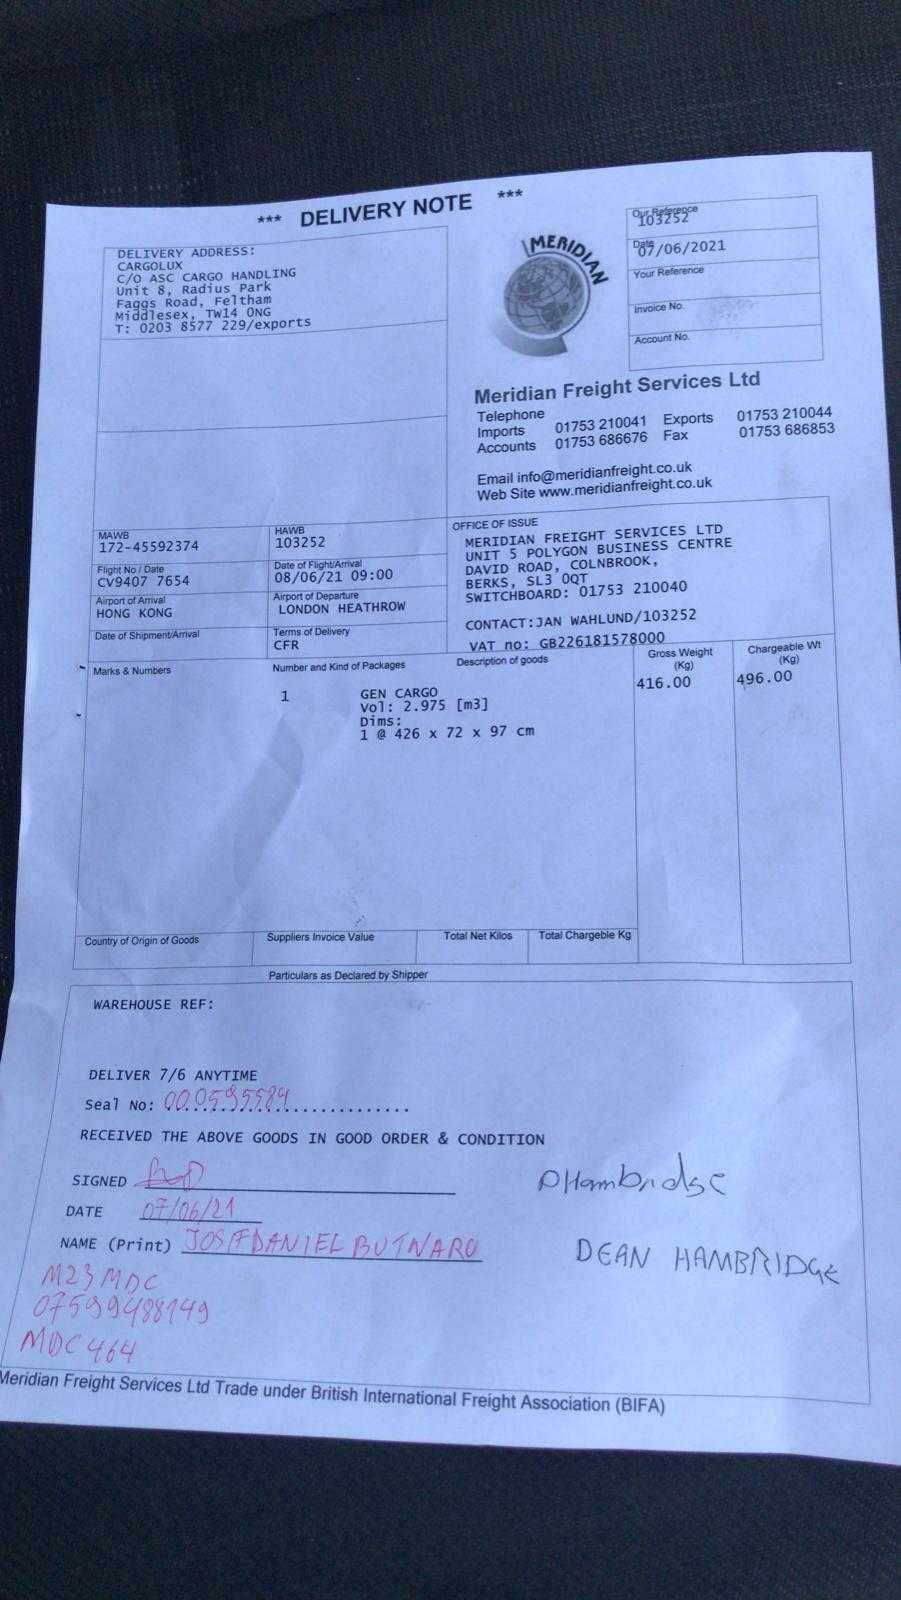 *** DELIVERY NOTE ***
DELIVERY ADDRESS:
CARGOLUX
C/O ASC CARGO HANDLING
Unit 8, Radius Park
Faggs Road, Feltham
Middlesex, TW14 0NG
T: 0203 8577 229/exports
MERIDIAN
Our Reference
103252
Date
07/06/2021
Your Reference
Invoice No.
Account No.
Meridian Freight Services Ltd
Telephone
Imports 01753 210041 Exports 01753 210044
Accounts 01753 686676 Fax 01753 686853
Email info@meridianfreight.co.uk
Web Site www.meridianfreight.co.uk
MAWB
172-45592374
HAWB
103252
Flight No / Date
CV9407 7654
Date of Flight/Arrival
08/06/21 09:00
Airport of Arrival
HONG KONG
Airport of Departure
LONDON HEATHROW
Date of Shipment/Arrival
Terms of Delivery
CFR
OFFICE OF ISSUE
MERIDIAN FREIGHT SERVICES LTD
UNIT 5 POLYGON BUSINESS CENTRE
DAVID ROAD, COLNBROOK,
BERKS, SL3 0QT
SWITCHBOARD: 01753 210040
CONTACT:JAN WAHLUND/103252
VAT no: GB226181578000
Marks & Numbers
Number and Kind of Packages
Description of goods
Gross Weight
(Kg)
Chargeable Wt
(Kg)
1 GEN CARGO 416.00 496.00
Vol: 2.975 [m3]
Dims:
1 @ 426 x 72 x 97 cm
Country of Origin of Goods
Suppliers Invoice Value
Total Net Kilos
Total Chargeable Kg
Particulars as Declared by Shipper
WAREHOUSE REF:
DELIVER 7/6 ANYTIME
Seal No: 000595584
RECEIVED THE ABOVE GOODS IN GOOD ORDER & CONDITION
SIGNED
DHambridge
DATE 07/06/21
NAME (Print) JOSIF DANIEL BUTNARU
DEAN HAMBRIDGE
M23 MDC
07599488149
MDC 464
Meridian Freight Services Ltd Trade under British International Freight Association (BIFA)